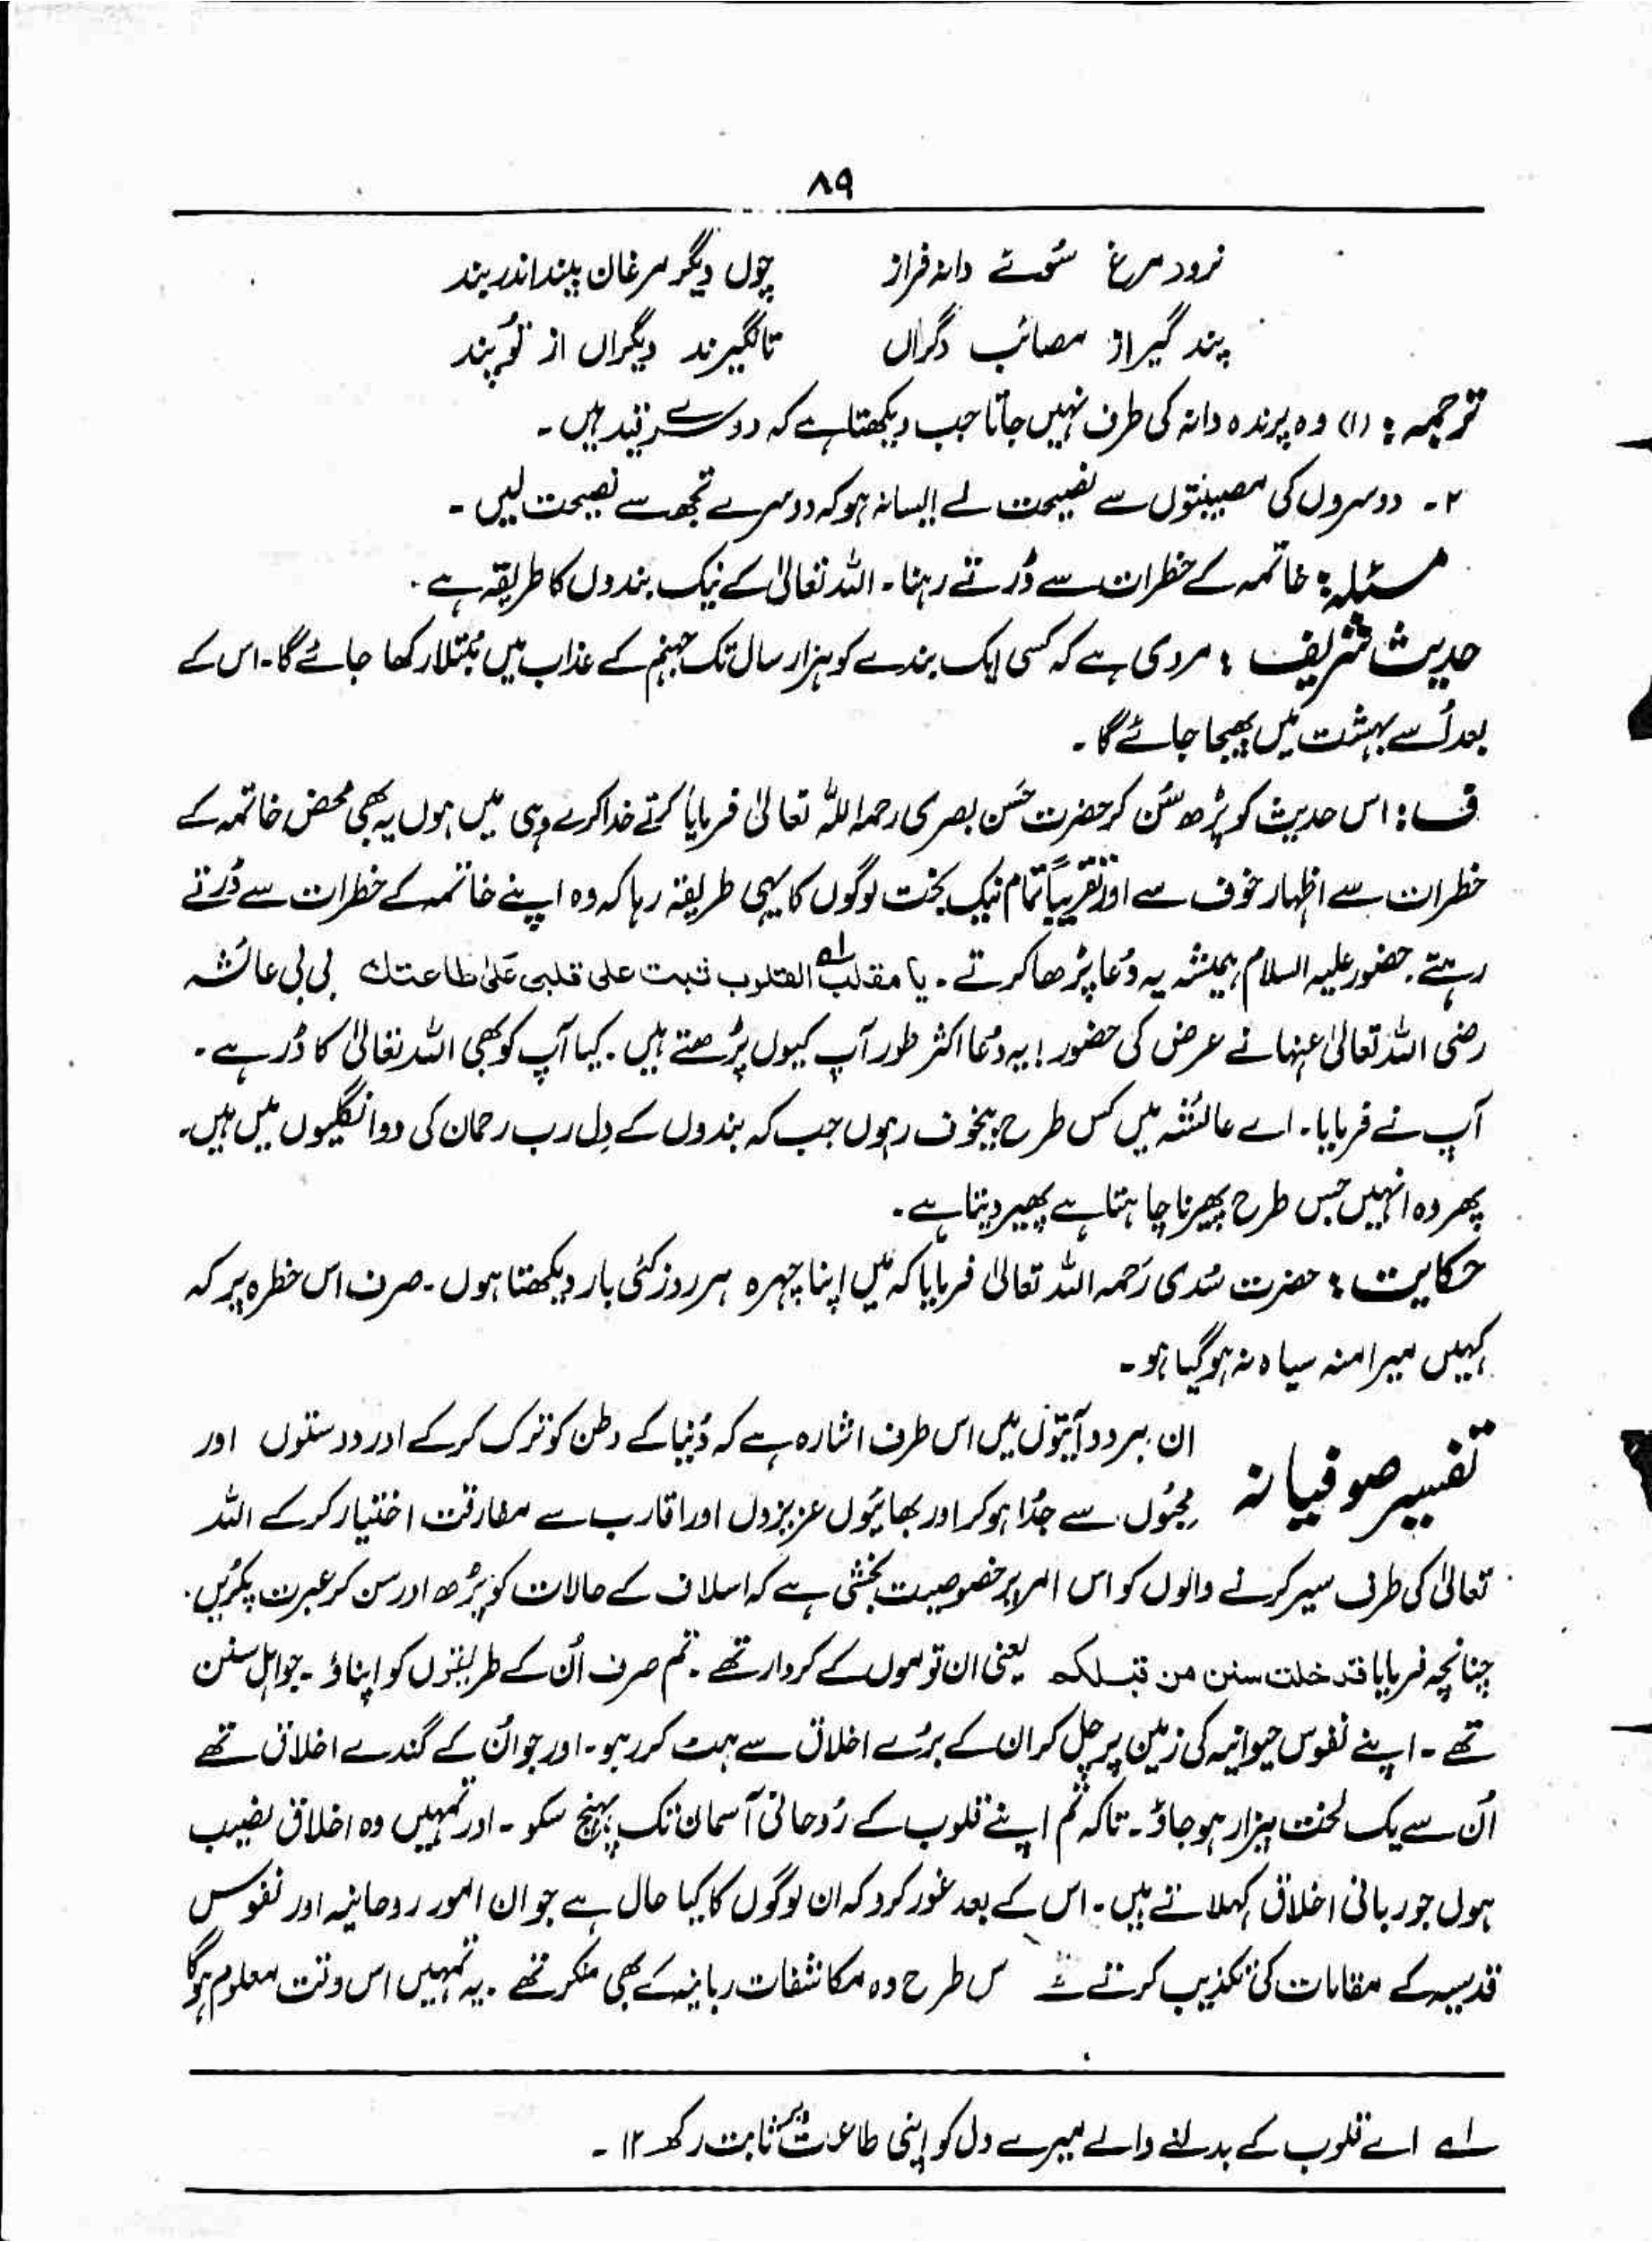 ۸۹
نرود مرغ سُوئے دانہ فراز چوں دیگر مرغان بیند اندر بند
پند گیر از مصائب دگراں تا نگیرند دیگراں از تُو پند
ترجمہ: (۱) وہ پرندہ دانہ کی طرف نہیں جاتا جب دیکھتا ہے کہ دوسرے قید ہیں۔
۲۔ دوسروں کی مصیبتوں سے نصیحت لے ایسا نہ ہو کہ دوسرے تجھ سے نصیحت لیں۔
مسئلہ: خاتمہ کے خطرات سے ڈرتے رہنا۔ اللہ تعالیٰ کے نیک بندوں کا طریقہ ہے۔
حدیث شریف: مروی ہے کہ کسی ایک بندے کو ہزار سال تک جہنم کے عذاب میں مُبتلا رکھا جائے گا۔ اس کے
بعد اُسے بہشت میں بھیجا جائے گا۔
ف: اس حدیث کو پڑھ سُن کر حضرت حَسن بصری رحمہ اللہ تعالیٰ فرمایا کرتے خدا کرے وہی میں ہوں یہ بھی محض خاتمہ کے
خطرات سے اظہار خوف سے اور تقریباً تمام نیک بخت لوگوں کا یہی طریقہ رہا کہ وہ اپنے خاتمہ کے خطرات سے ڈرتے
رہتے۔ حضور علیہ السلام ہمیشہ یہ دُعا پڑھا کرتے۔ یا مقلب القلوب ثبت علی قلبی عَلیٰ طاعتك بی بی عائشہ
رضی اللہ تعالیٰ عنہا نے عرض کی حضور! یہ دُعا اکثر طور آپ کیوں پڑھتے ہیں۔ کیا آپ کو بھی اللہ تعالیٰ کا ڈر ہے۔
آپ نے فرمایا۔ اے عائشہ میں کس طرح بیخوف رہوں جب کہ بندوں کے دِل رب رحمان کی دو انگلیوں میں ہیں۔
پھر وہ انہیں جس طرح پھیرنا چاہتا ہے پھیر دیتا ہے۔
حکایت: حضرت سُدی رَحمہ اللہ تعالیٰ فرمایا کہ میں اپنا چہرہ ہر روز کئی بار دیکھتا ہوں۔ صرف اس خطرہ پر کہ
کہیں میرا منہ سیاہ نہ ہو گیا ہو۔
تفسیر صوفیانہ ان ہر دو آیتوں میں اس طرف اشارہ ہے کہ دُنیا کے وطن کو ترک کر کے اور دوستوں اور
مِحبُوں سے جُدا ہو کر اور بھائیوں عزیزوں اور اقارب سے مفارقت اختیار کر کے اللہ
تعالیٰ کی طرف سیر کرنے والوں کو اس امر پر خصوصیت بخشی ہے کہ اسلاف کے حالات کو پڑھ اور سن کر عبرت پکڑیں۔
چنانچہ فرمایا قد خلت سنن من قبلکم یعنی ان قوموں کے کردار تھے۔ تم صرف اُن کے طریقوں کو اپناؤ۔ جو اہل سنن
تھے۔ اپنے نفوس حیوانیہ کی زمین پر چل کر ان کے بُرے اخلاق سے ہٹ کر رہو۔ اور جو اُن کے گندے اخلاق تھے
اُن سے یک لخت بیزار ہو جاؤ۔ تاکہ تم اپنے قلوب کے رُوحانی آسمان تک پہنچ سکو۔ اور تمہیں وہ اخلاق نصیب
ہوں جو ربانی اخلاق کہلاتے ہیں۔ اس کے بعد غور کرو کہ ان لوگوں کا کیا حال ہے جو ان امور روحانیہ اور نفوس
قدسیہ کے مقامات کی تکذیب کرتے س طرح وہ مکاشفات ربانیہ کے بھی منکر تھے۔ یہ تمہیں اس وقت معلوم ہوگا
لہ اے قلوب کے بدلنے والے میرے دل کو اپنی طاعت پر ثابت رکھ ۱۲۔